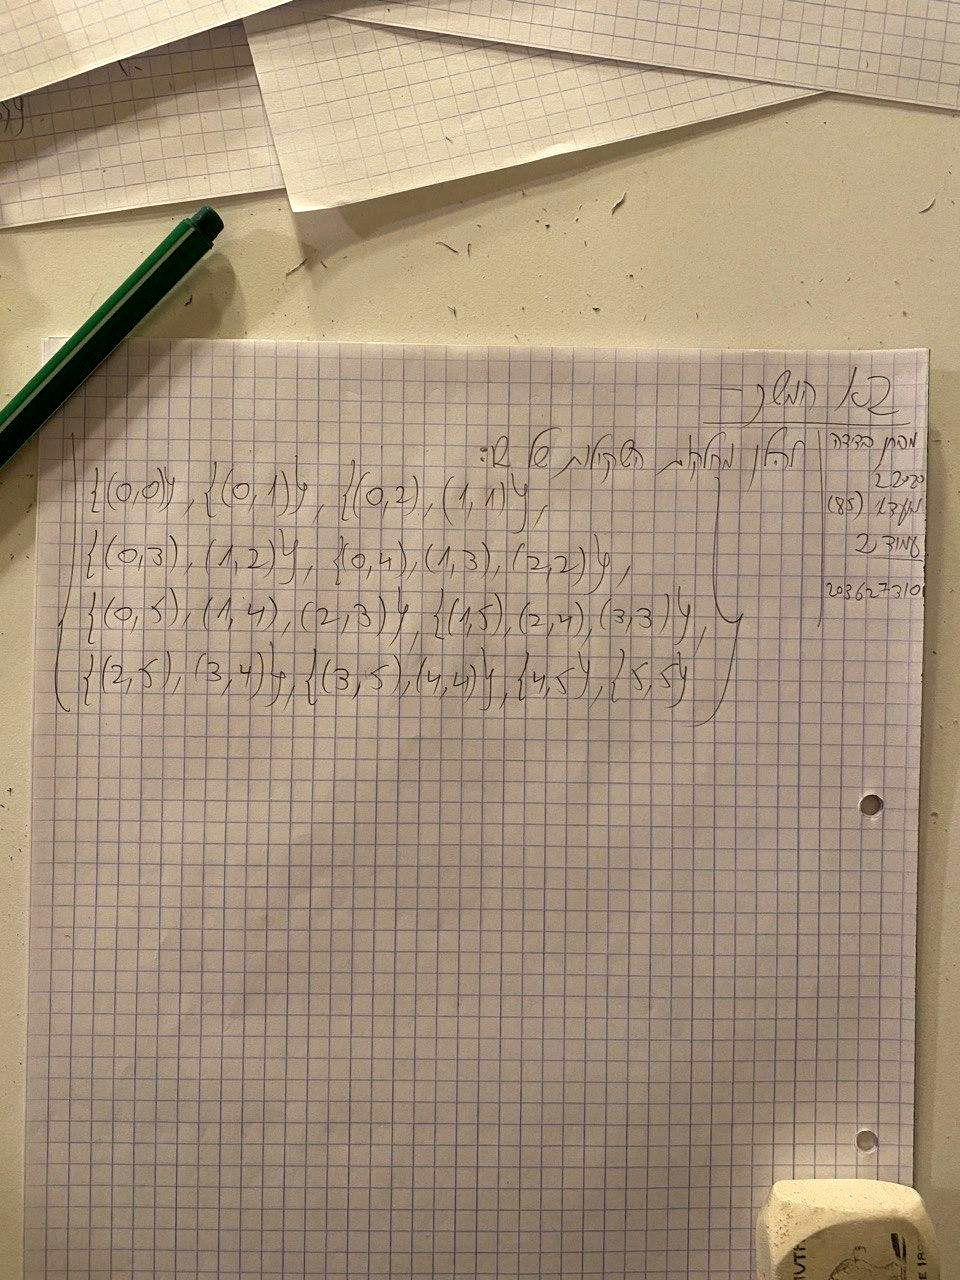 2א המשך
מבחן בדידה
2020 2
מועד א (85)
עמוד 2
203627310
להלן מחלקות השקילות של S:
{(0,0)}, {(0,1)}, {(0,2), (1,1)},
{(0,3), (1,2)}, {(0,4), (1,3), (2,2)},
{(0,5), (1,4), (2,3)}, {(1,5), (2,4), (3,3)},
{(2,5), (3,4)}, {(3,5), (4,4)}, {4,5}, {5,5}